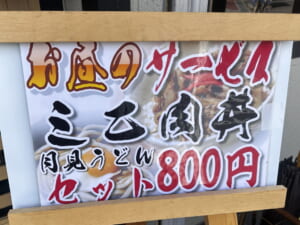 お昼のサービス
ミニ肉丼
月見うどん
セット800円